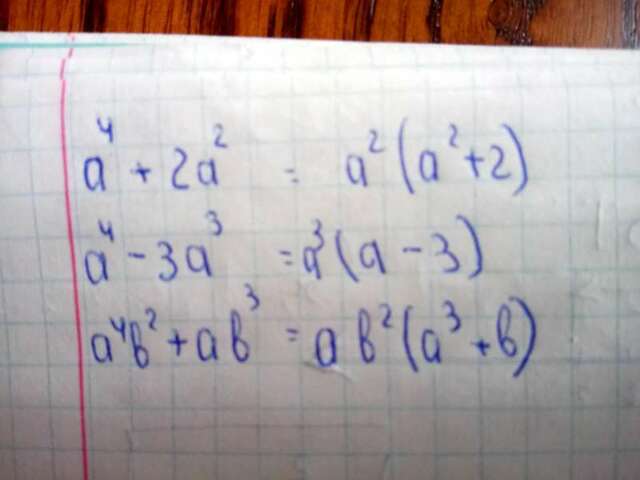 a⁴ + 2a² = a²(a²+2)
a⁴ - 3a³ = a³(a - 3)
a⁴b² + ab³ = ab²(a³ + b)